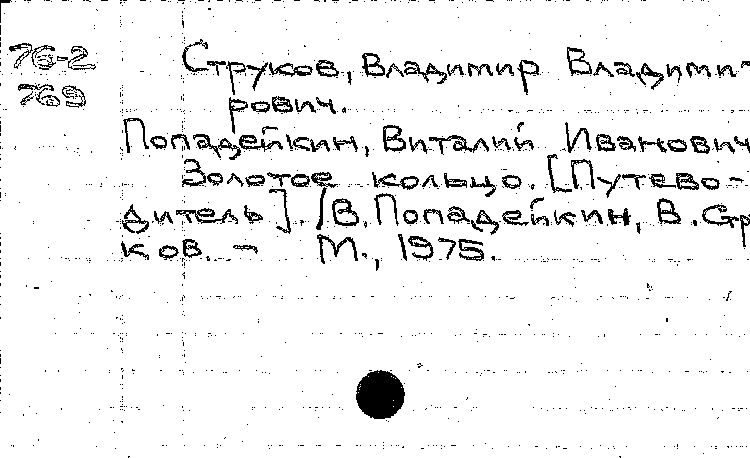 76-2 Струков, Владимир Владими-
769 рович.
Попадейкин, Виталий Иванович
Золотое кольцо. [Путево-
дитель]. /В. Попадейкин, В. Стр
ков. – М., 1975.